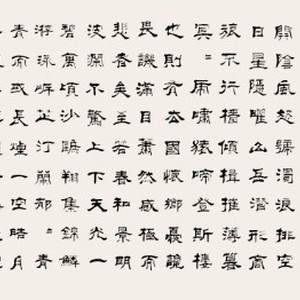 開陰風怒號濁浪排空
日星隱曜山岳潛形商
旅不行檣傾楫摧薄暮
冥〻虎嘯猿啼登斯樓
也則有去國懷鄉憂讒
畏譏滿目蕭然感極而
悲者矣至若春和景明
波瀾不驚上下天光一
碧萬頃沙鷗翔集錦鱗
游泳岸芷汀蘭郁〻青
青而或長煙一空皓月